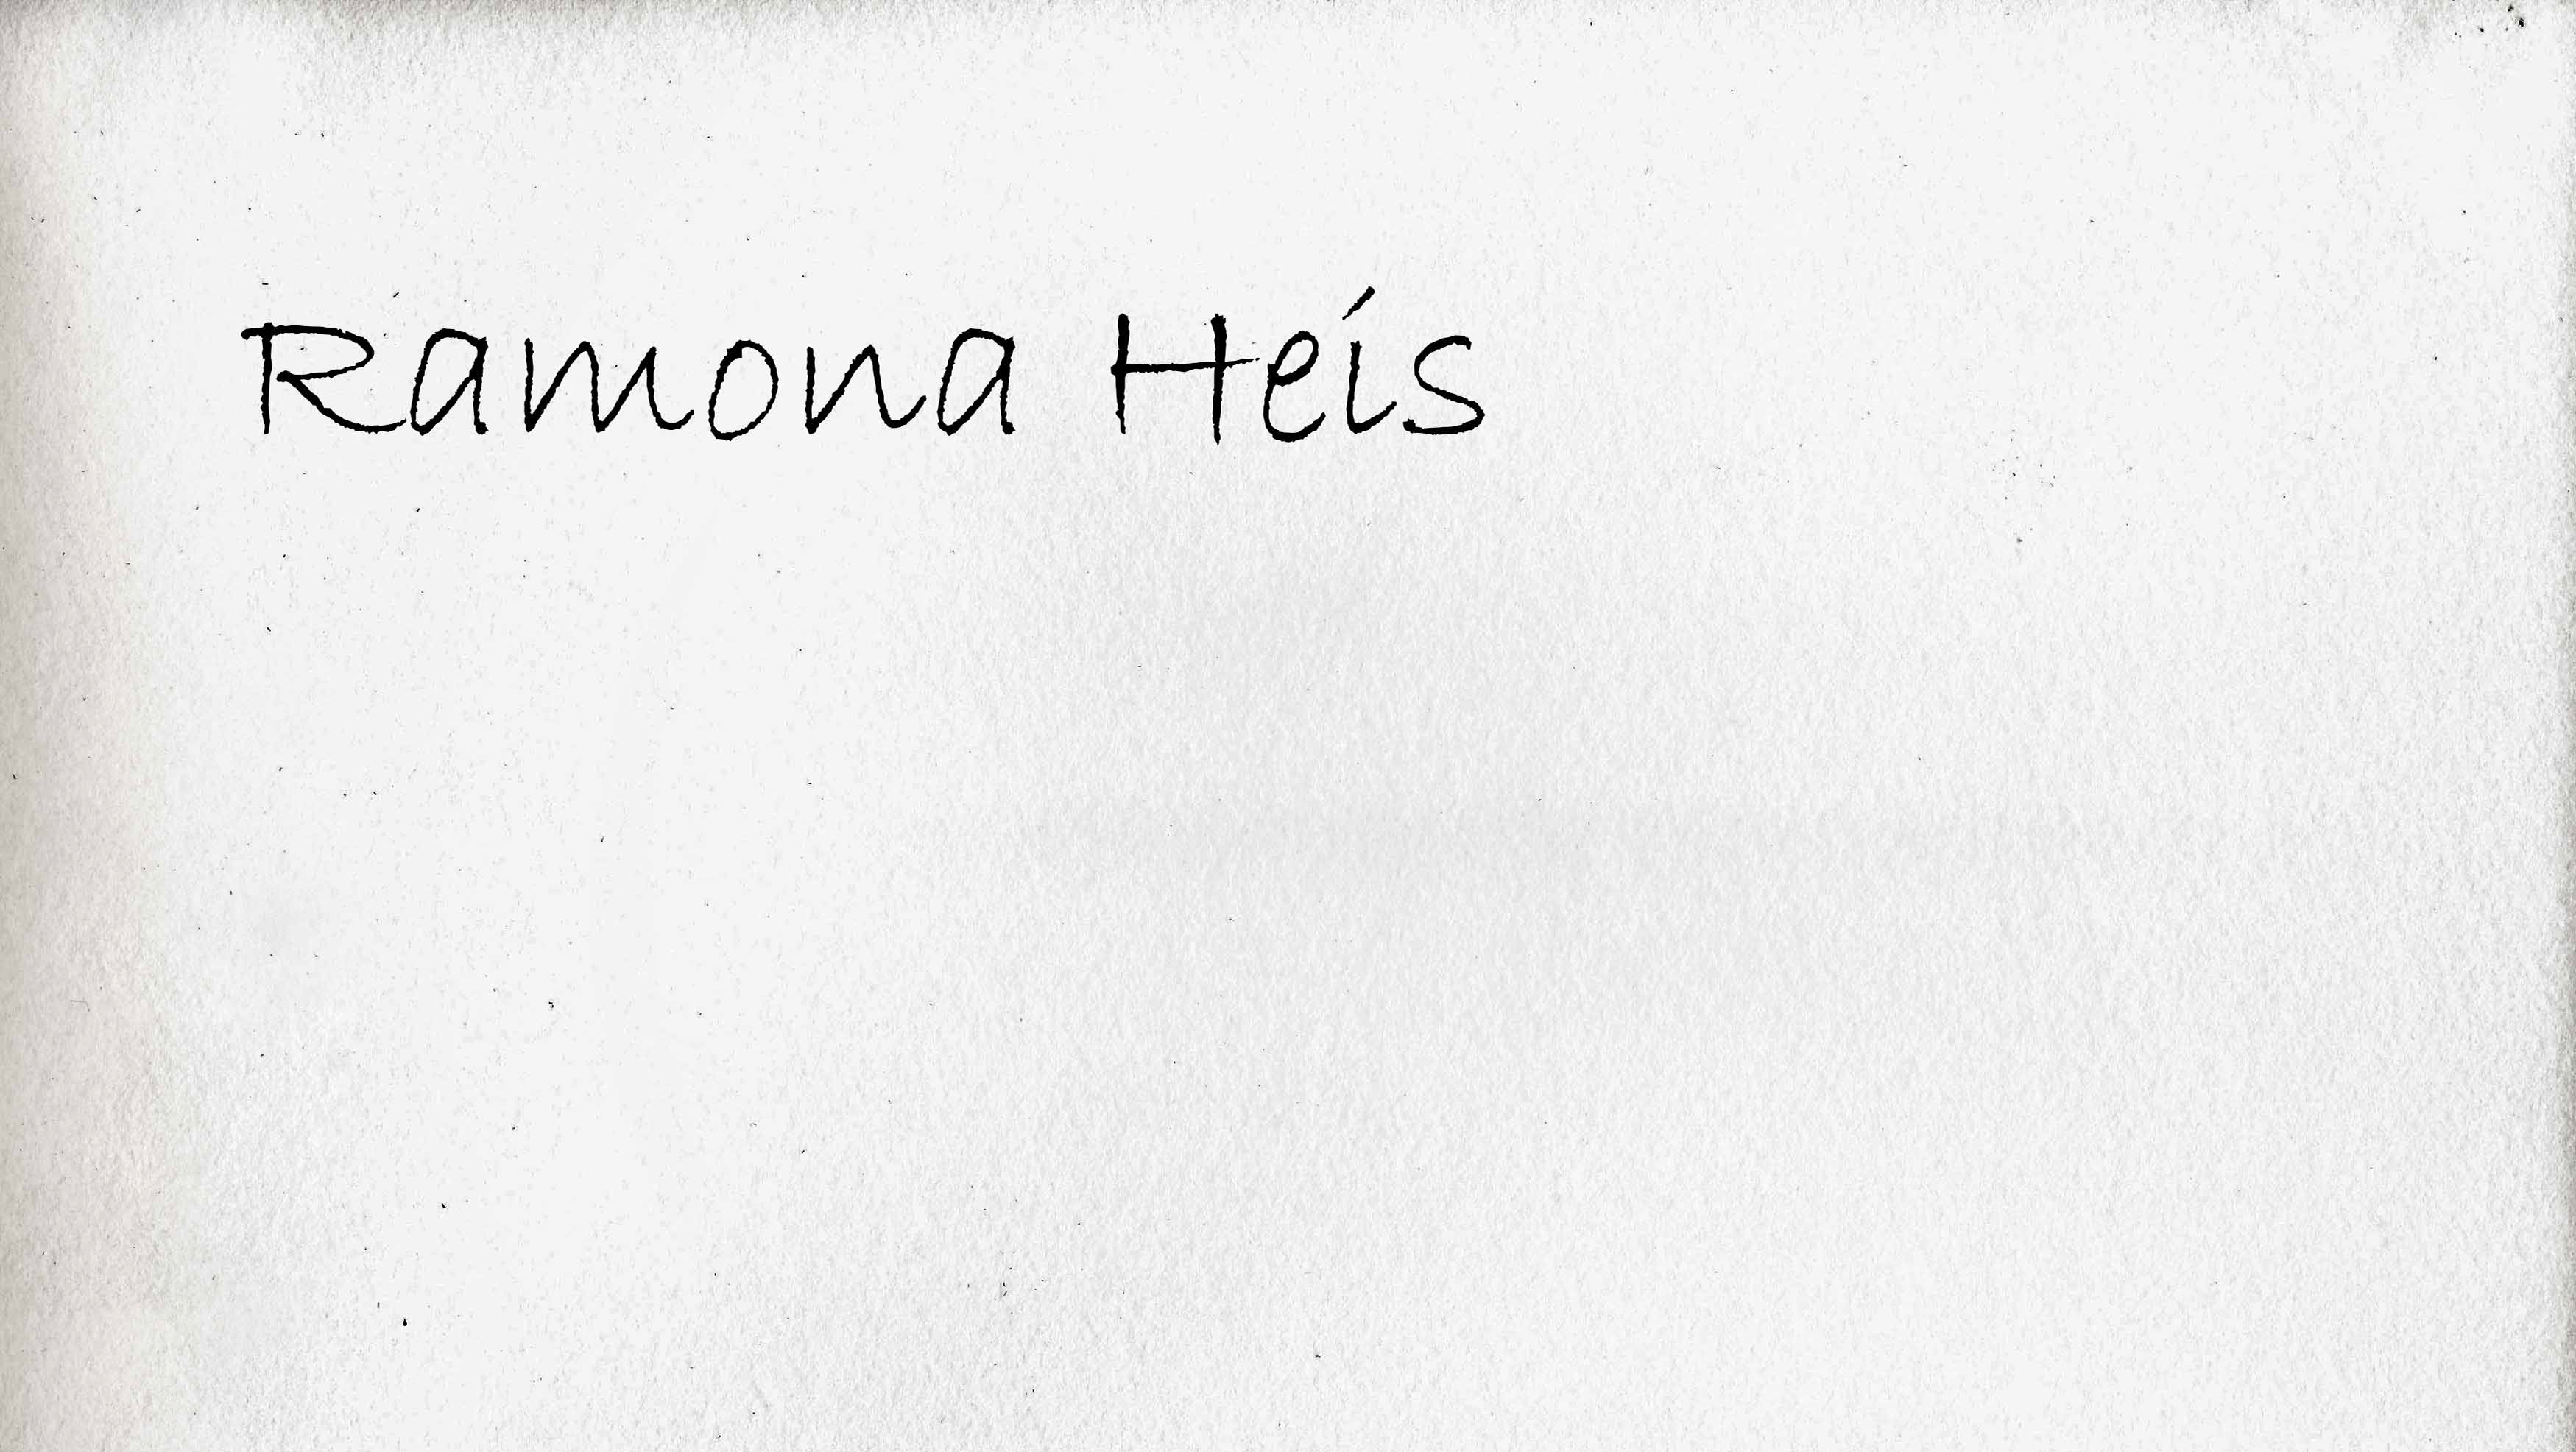 Ramona Heis